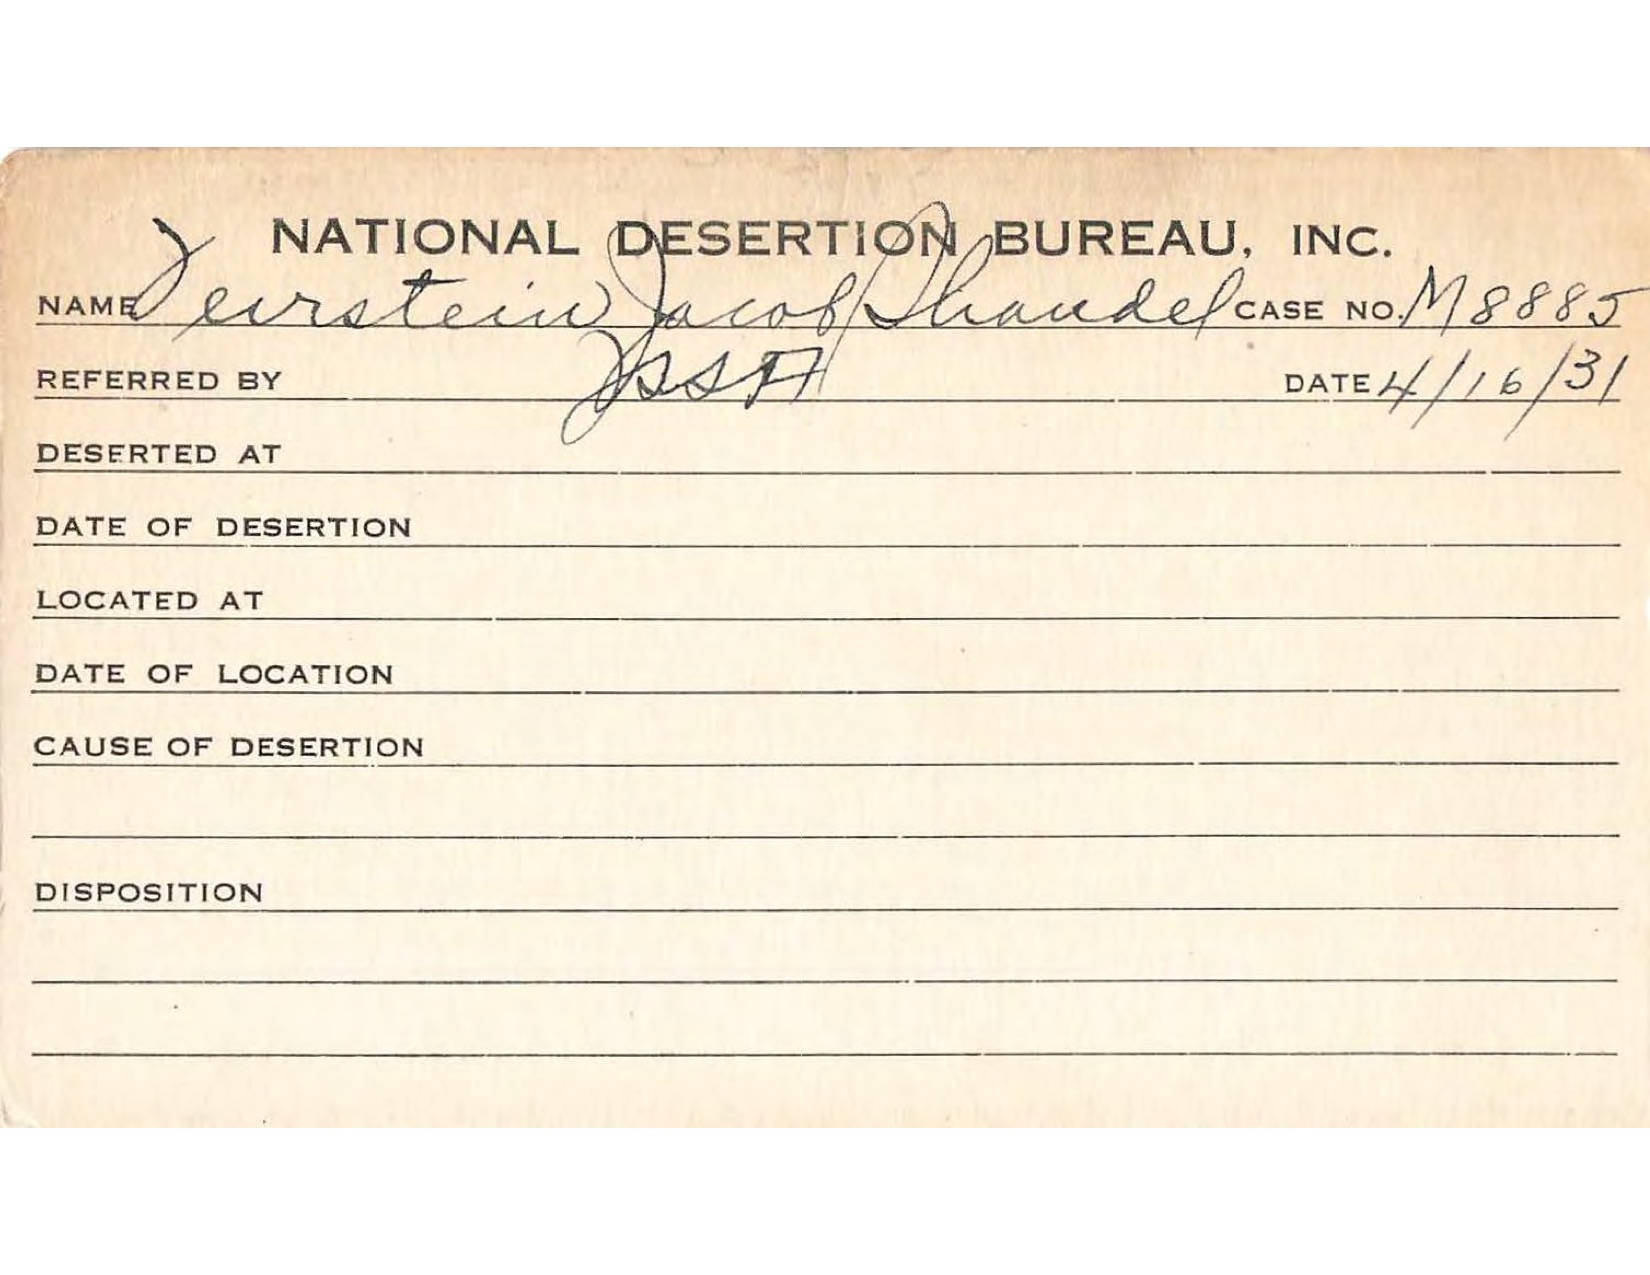 NATIONAL DESERTION BUREAU, INC.
NAME Teirstein Jacob/Shandel CASE NO. M8885
REFERRED BY JSSA DATE 4/16/31
DESERTED AT
DATE OF DESERTION
LOCATED AT
DATE OF LOCATION
CAUSE OF DESERTION
DISPOSITION